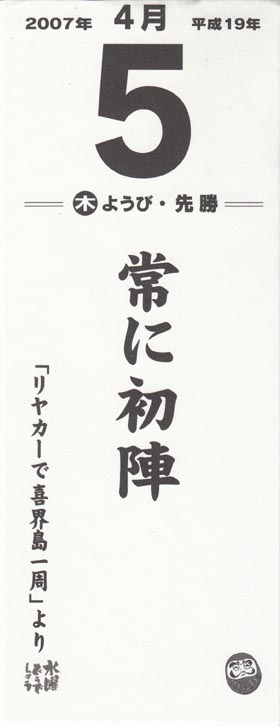 2007年 4月 平成19年
5
木ようび・先勝
常に初陣
「リヤカーで喜界島一周」より
水曜どうでしょう